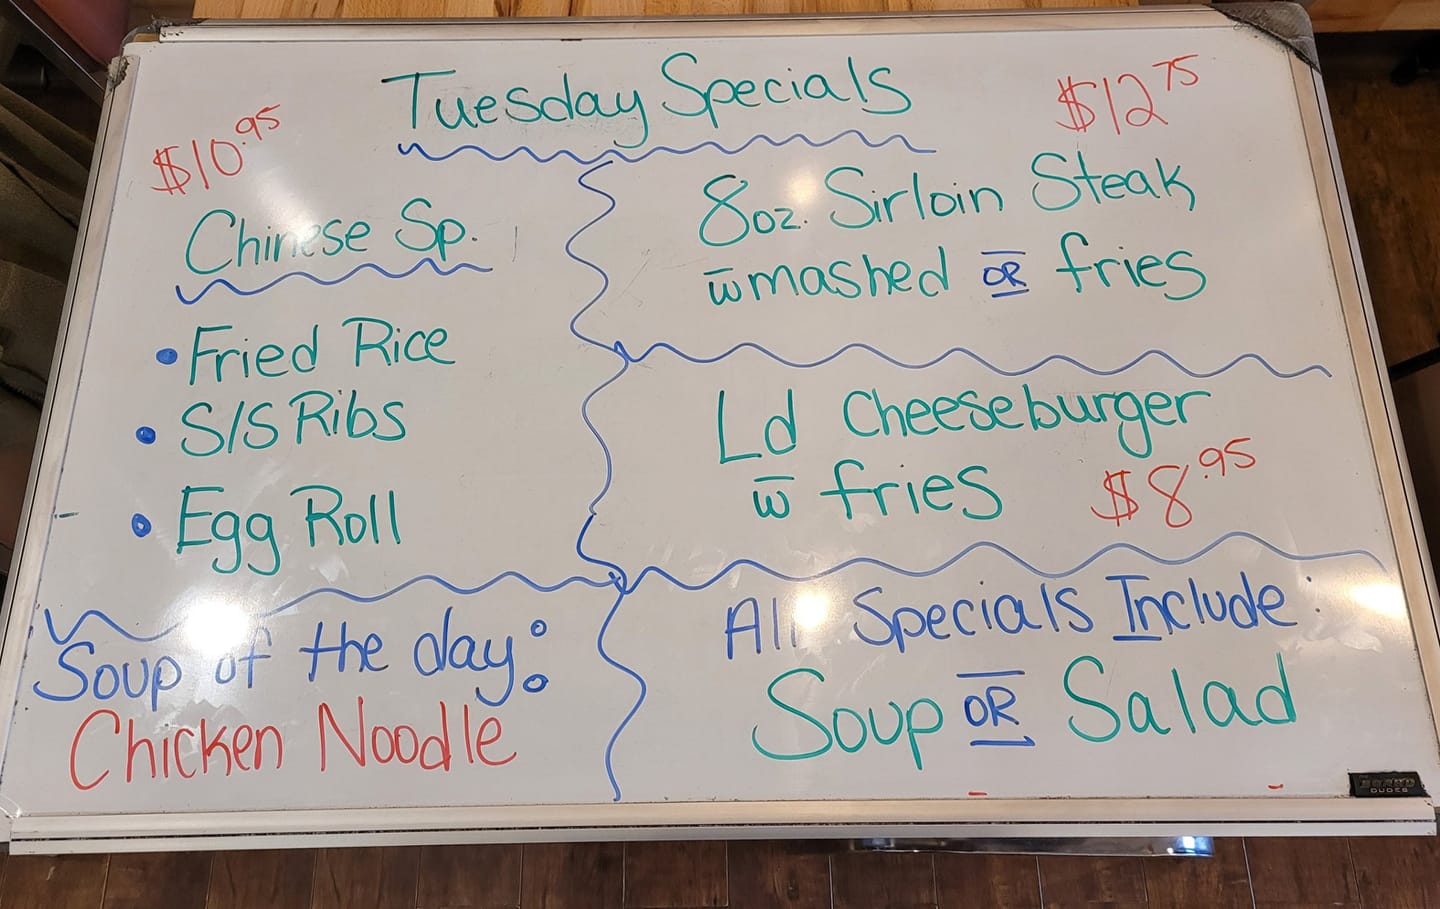 Tuesday Specials
$10.95
Chinese Sp.
• Fried Rice
• S/S Ribs
• Egg Roll
$12 75
8oz. Sirloin Steak
w̅ mashed OR fries
Ld Cheeseburger
w̅ fries $8.95
Soup of the day:
Chicken Noodle
All Specials Include:
Soup OR Salad
BOARD
DUDES